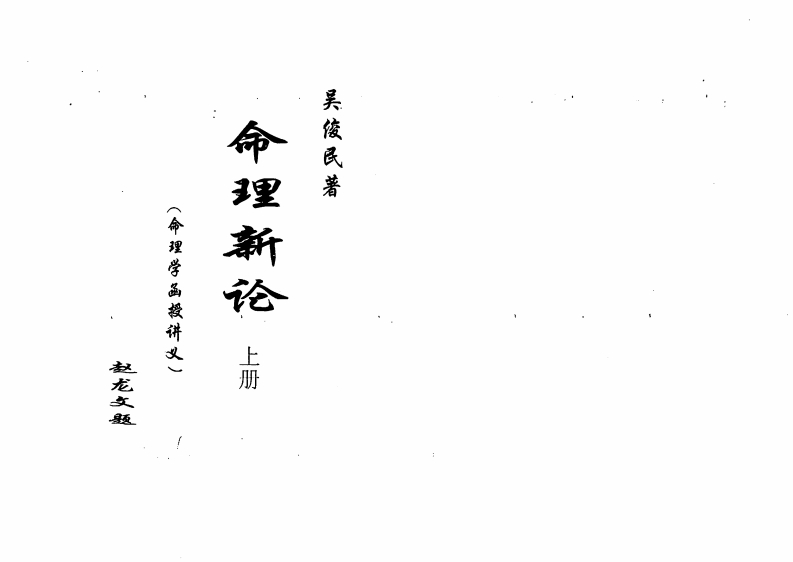 吴俊民著
命理新论
上册
（命理学函授讲义）
赵龙文题